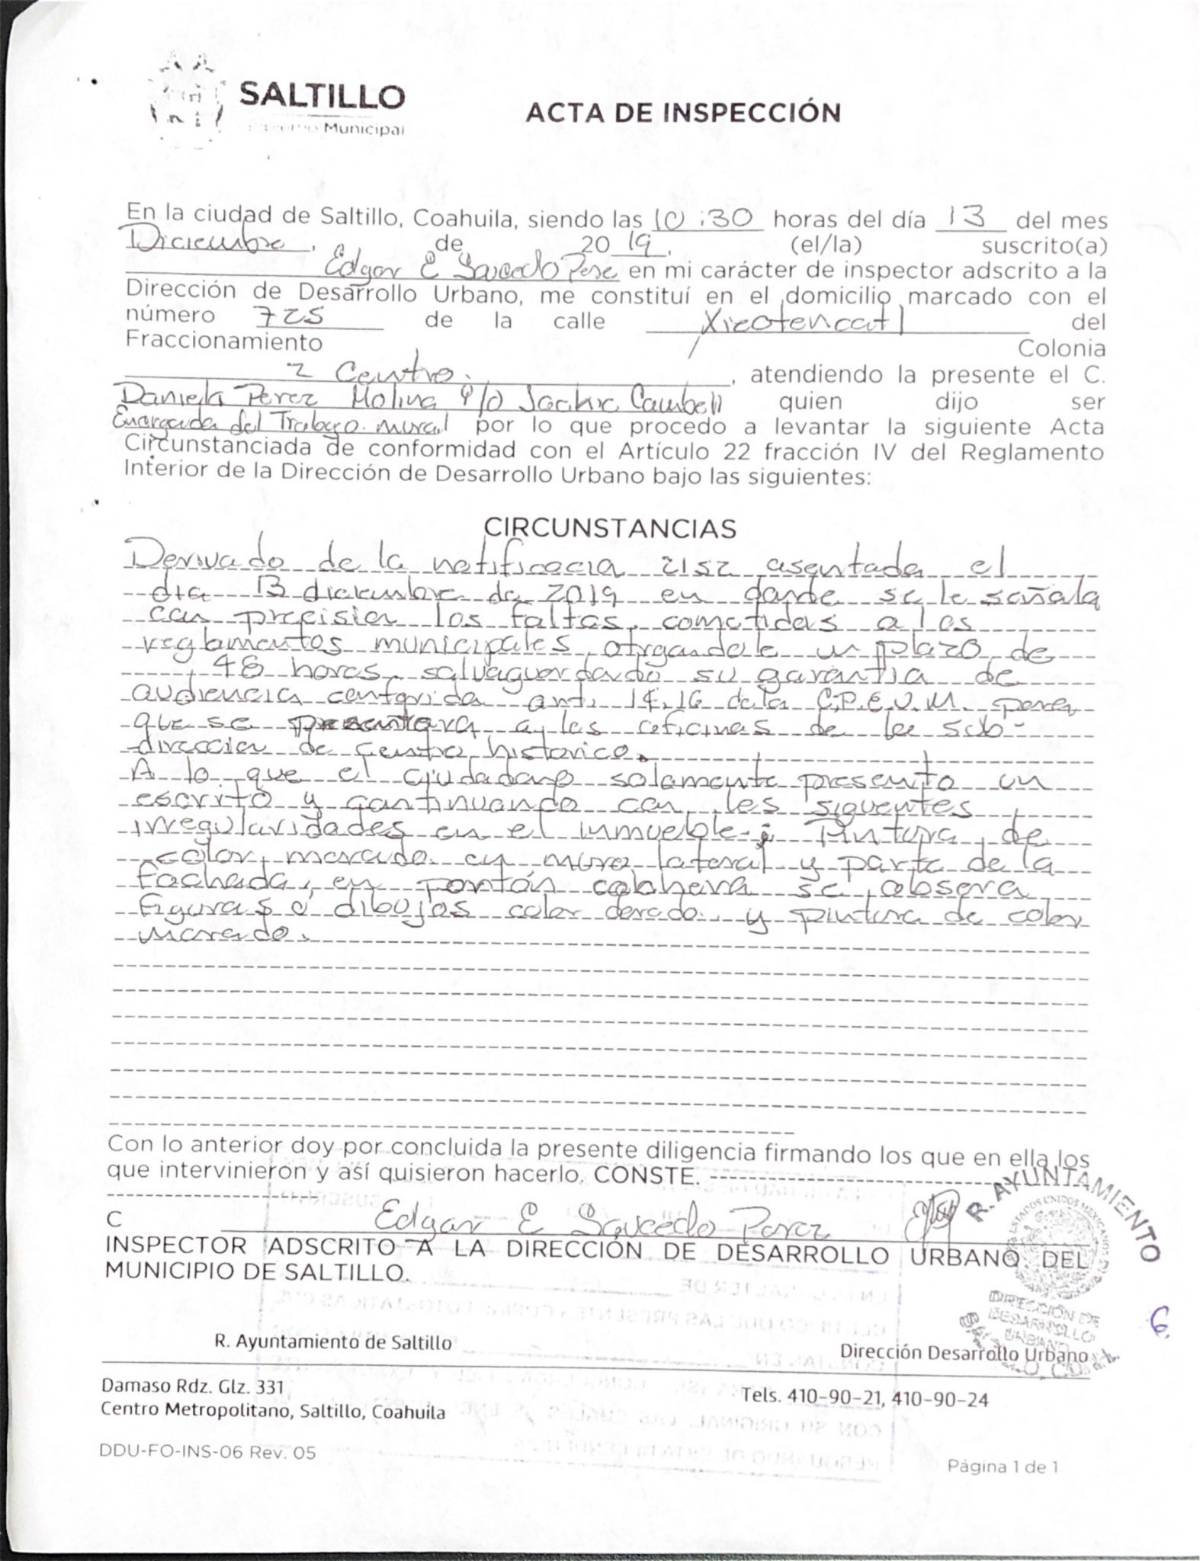 SALTILLO
Municipal
ACTA DE INSPECCIÓN
En la ciudad de Saltillo, Coahuila, siendo las 10:30 horas del día 13 del mes
Diciembre, de 2019, (el/la) suscrito(a)
Edgar E Saucedo Perez en mi carácter de inspector adscrito a la
Dirección de Desarrollo Urbano, me constituí en el domicilio marcado con el
número 725 de la calle Xicotencatl del
Fraccionamiento / Colonia
Z Centro. , atendiendo la presente el C.
Daniela Perez Molina y/o Cambell quien dijo ser
Encargada del Trabajo mural por lo que procedo a levantar la siguiente Acta
Circunstanciada de conformidad con el Artículo 22 fracción IV del Reglamento
Interior de la Dirección de Desarrollo Urbano bajo las siguientes:
CIRCUNSTANCIAS
Derivado de la notificacia 2152 asentada el
dia 13 diciembre de 2019 en donde se le señala
con precision las faltas cometidas a los
reglamentos municipales, otrgandole un plazo de
48 horas, salvaguardando su garantia de
audiencia contenida art. 14, 16 de la C.P.E.U.M. para
que se presentara a las oficinas de la sub-
direccion de Centro historico.
A lo que el ciudadano solamente presento un
escrito y continuando con las siguentes
irregularidades en el inmueble: Pintura de
color morado en muro lateral y parte de la
fachada, en portón cochera se obsera
figuras o dibujos color dorado, y pintura de color
morado.
Con lo anterior doy por concluida la presente diligencia firmando los que en ella los
que intervinieron y así quisieron hacerlo, CONSTE.
C Edgar E Saucedo Perez
INSPECTOR ADSCRITO A LA DIRECCIÓN DE DESARROLLO URBANO DEL
MUNICIPIO DE SALTILLO.
R. AYUNTAMIENTO
ESTADOS UNIDOS MEXICANOS
DIRECCIÓN DE
DESARROLLO
URBANO
6
R. Ayuntamiento de Saltillo
Dirección Desarrollo Urbano
Damaso Rdz. Glz. 331
Centro Metropolitano, Saltillo, Coahuila
Tels. 410-90-21, 410-90-24
DDU-FO-INS-06 Rev. 05
Página 1 de 1